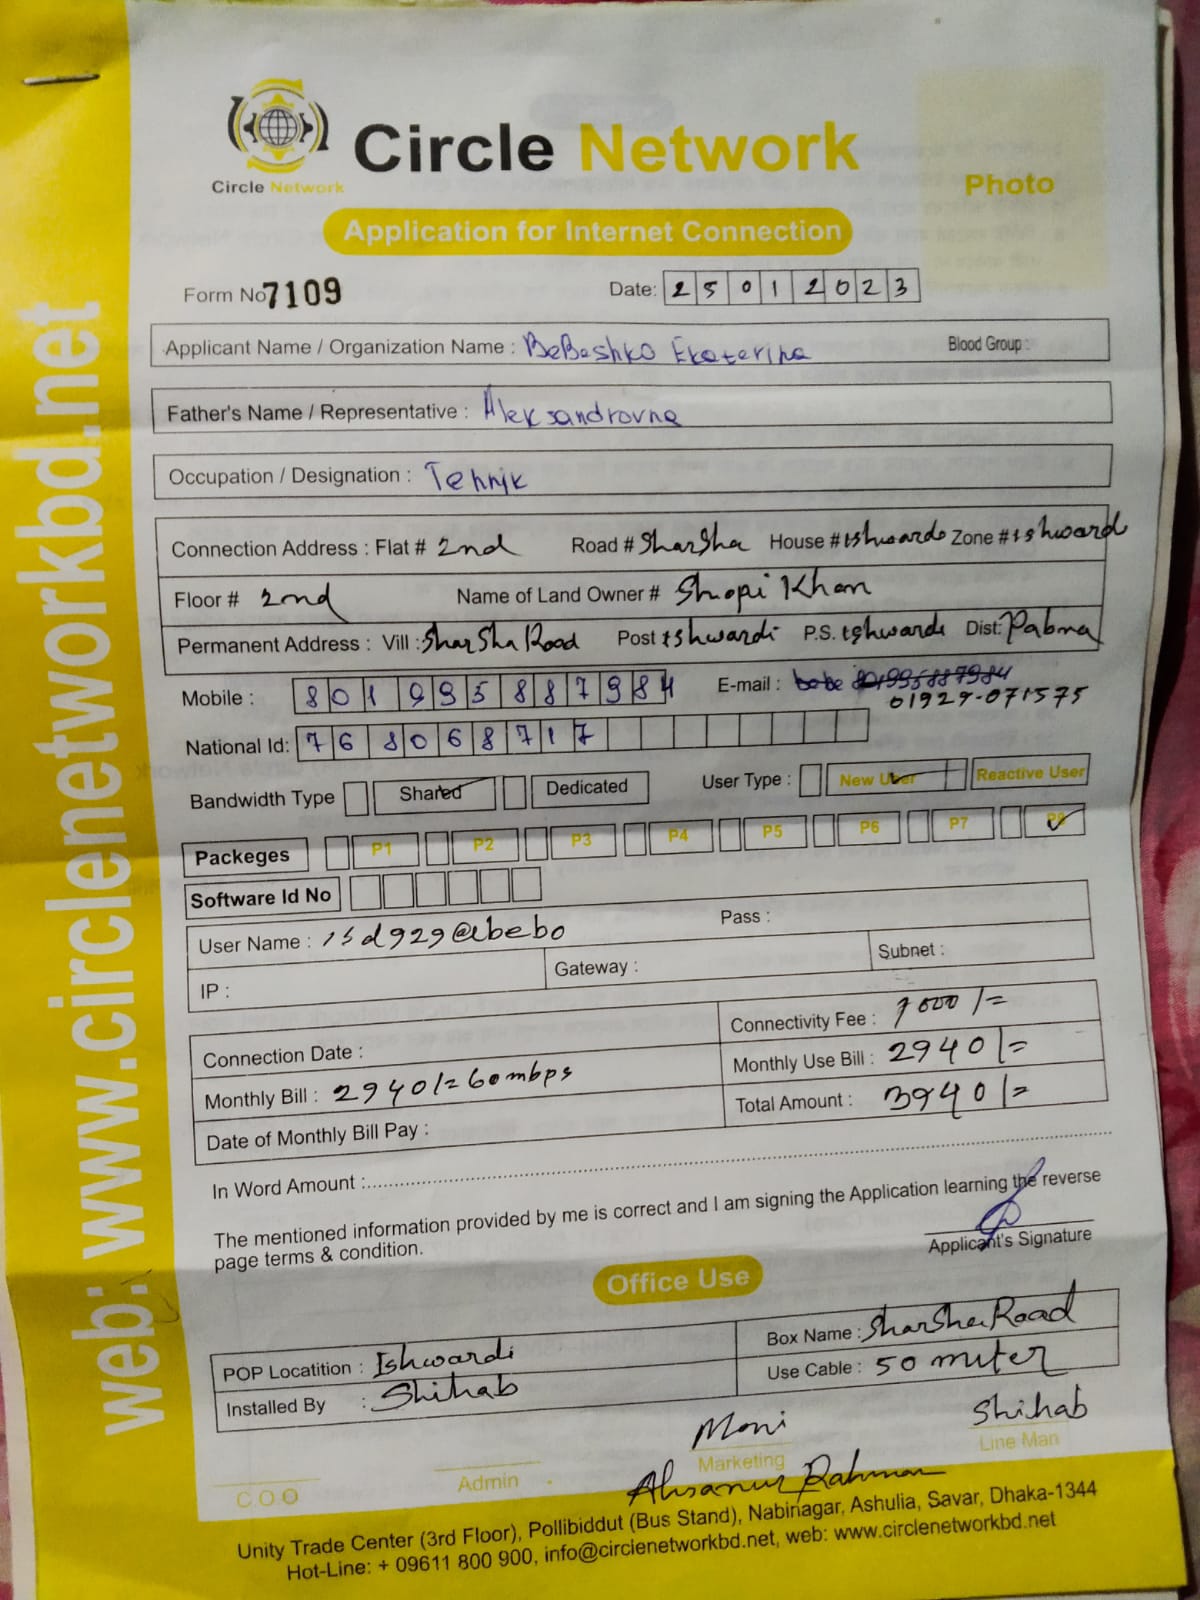 web: www.circlenetworkbd.net
Circle Network
Circle Network
Photo
Application for Internet Connection
Form No 7109 Date: 25012023
Applicant Name / Organization Name : BeBeshko Ekaterina Blood Group :
Father's Name / Representative : Aleksandrovna
Occupation / Designation : Tehnik
Connection Address : Flat # 2nd Road # SharSha House # Ishwardi Zone # Ishward
Floor # 2nd Name of Land Owner # Shopi Khan
Permanent Address : Vill : SharSha Road Post Ishwardi P.S. Ishwardi Dist: Pabna
Mobile : 801995887984 E-mail : bebe 801995887984
01929-071575
National Id: 768068717
Bandwidth Type Shared Dedicated User Type : New User Reactive User
Packeges P1 P2 P3 P4 P5 P6 P7 P8
Software Id No
User Name : isd929@bebo Pass :
IP : Gateway : Subnet :
Connection Date : Connectivity Fee : 1000/=
Monthly Bill : 2940/= 60mbps Monthly Use Bill : 2940/=
Date of Monthly Bill Pay : Total Amount : 3940/=
In Word Amount :
The mentioned information provided by me is correct and I am signing the Application learning the reverse
page terms & condition.
Applicant's Signature
Office Use
POP Locatition : Ishwardi Box Name : SharSha Road
Installed By : Shihab Use Cable : 50 miter
Moni Shihab
C.O.O Admin Marketing Line Man
Ahsanur Rahman
Unity Trade Center (3rd Floor), Pollibiddut (Bus Stand), Nabinagar, Ashulia, Savar, Dhaka-1344
Hot-Line: + 09611 800 900, info@circlenetworkbd.net, web: www.circlenetworkbd.net